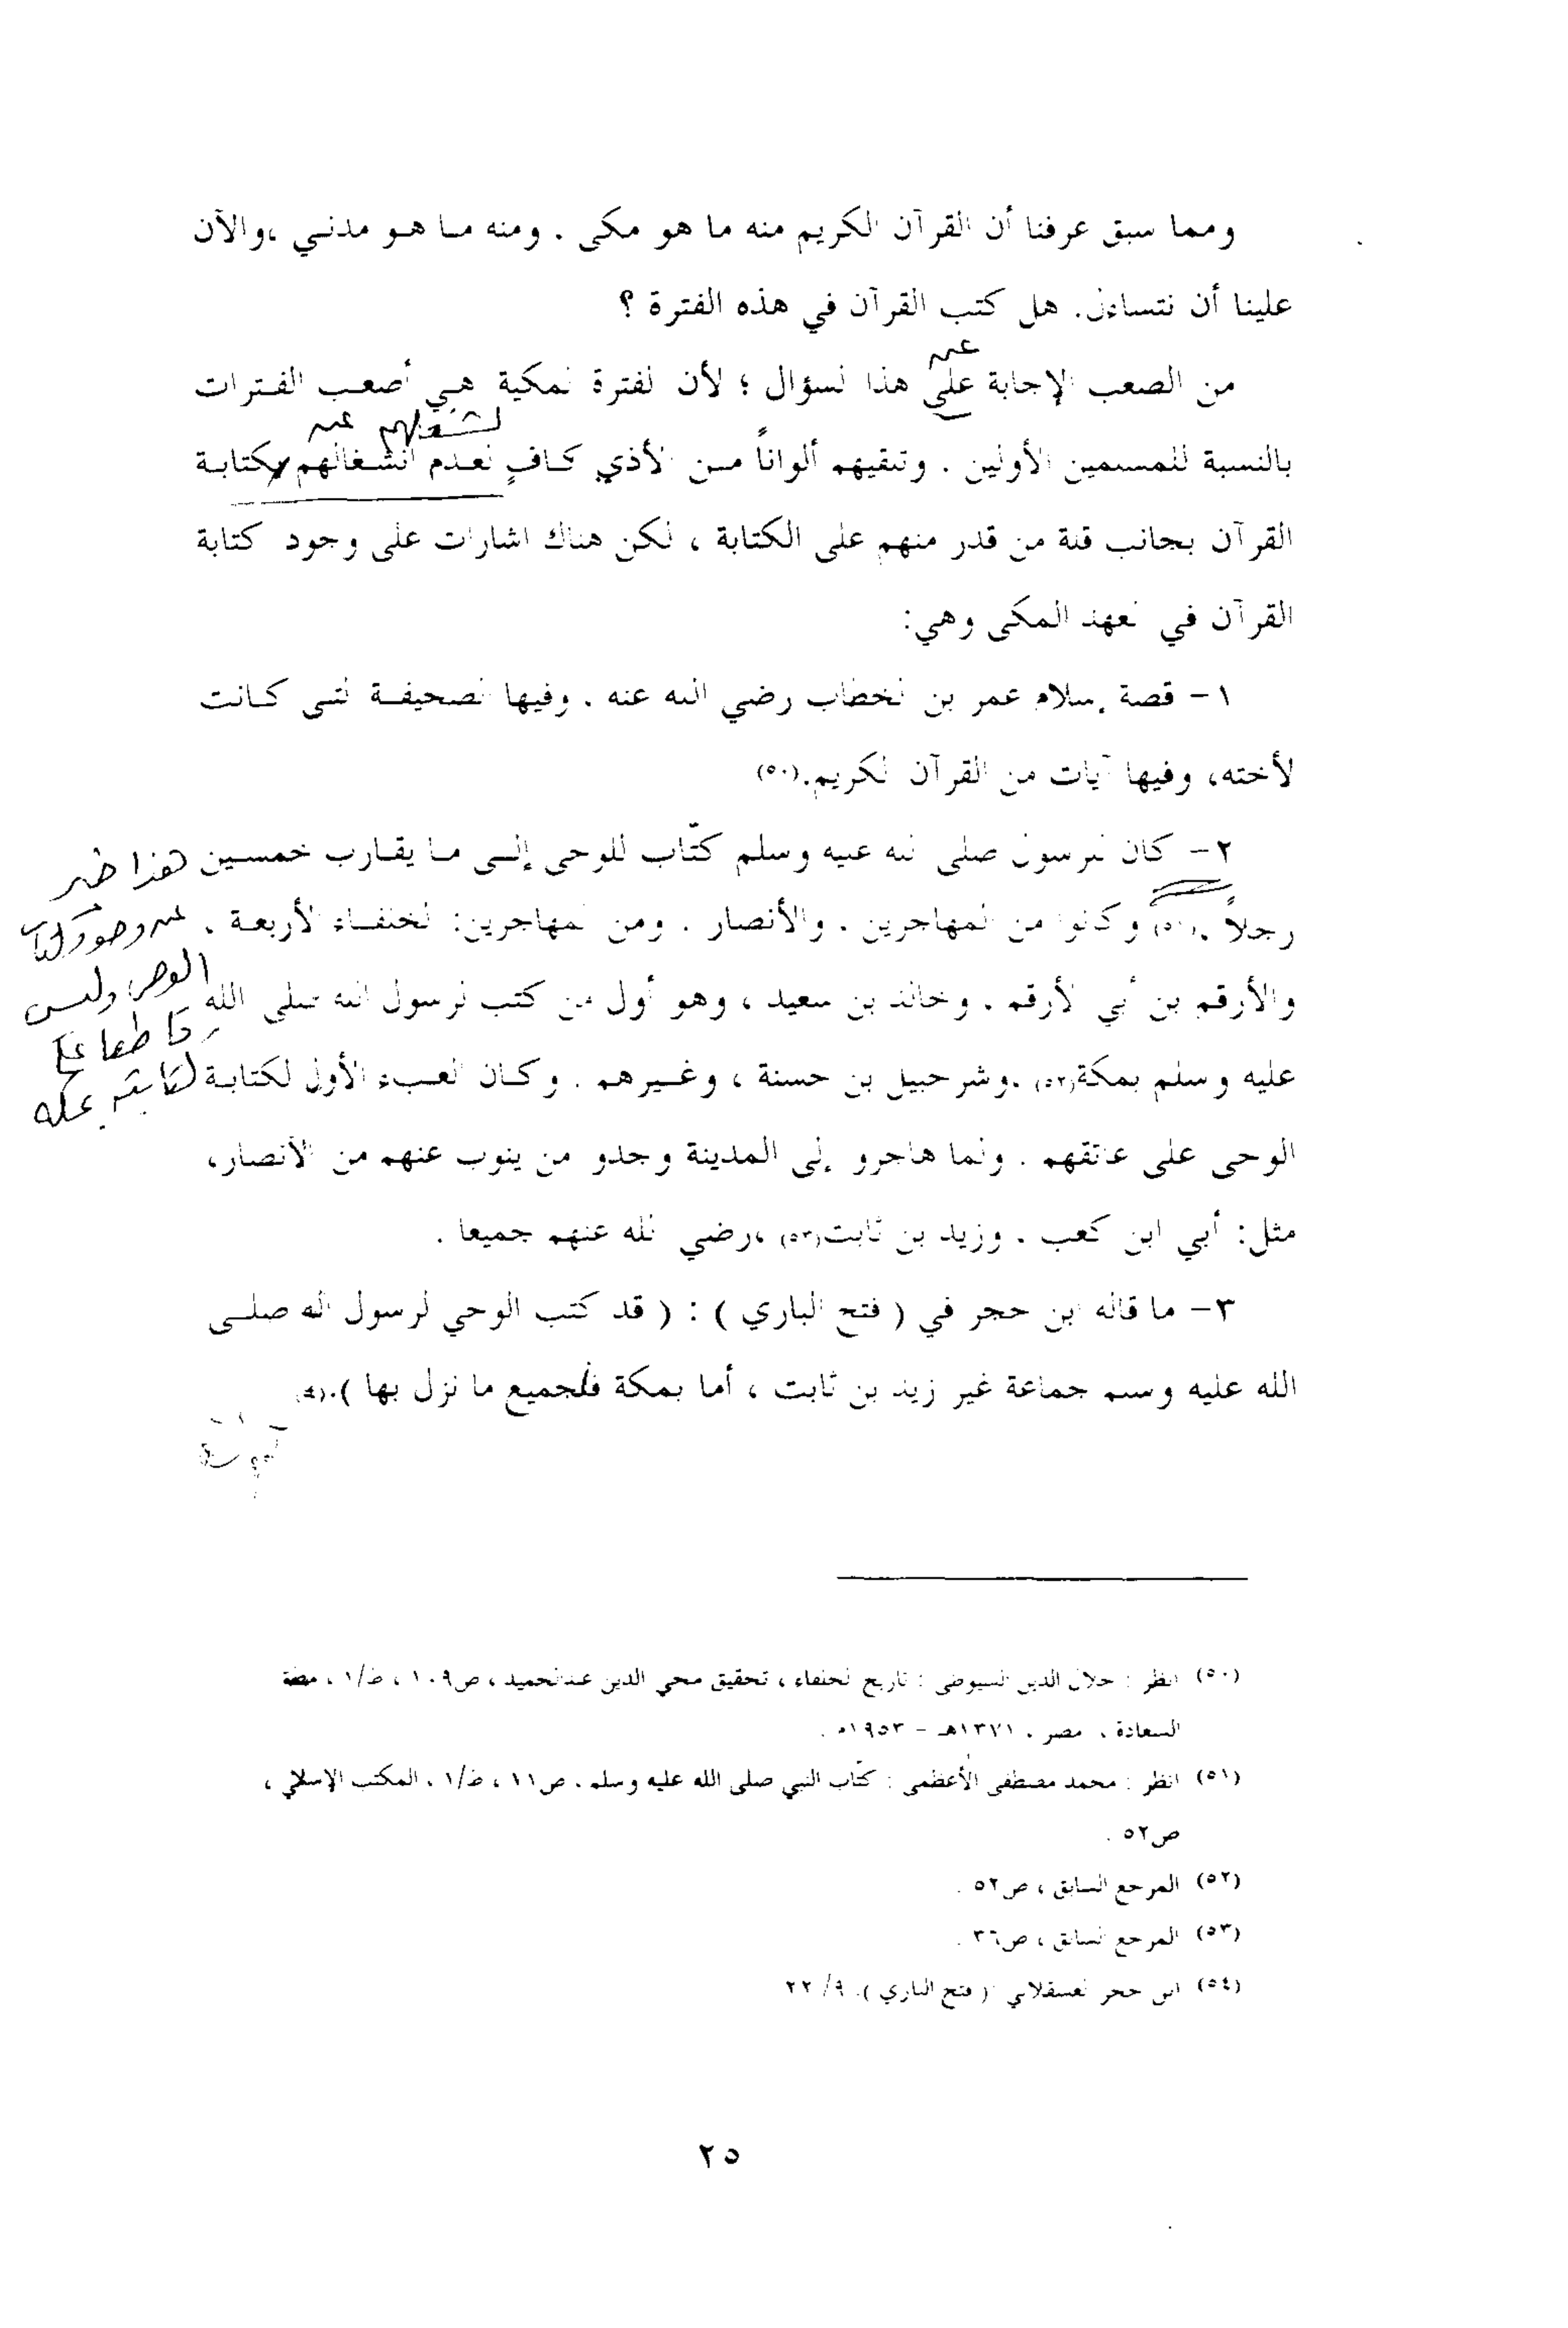 ومما سبق عرفنا أن القرآن الكريم منه ما هو مكى . ومنه ما هو مدني ،والآن
علينا أن نتساءل. هل كتب القرآن في هذه الفترة ؟
عن
من الصعب الإجابة على هذا السؤال ؛ لأن الفترة المكية هي أصعب الفترات
لشغلهم عن
بالنسبة للمسلمين الأولين . وتلقيهم ألواناً من الأذي كافٍ لعدم انشغالهم بكتابة
القرآن بجانب قلة من قدر منهم على الكتابة ، لكن هناك اشارات على وجود كتابة
القرآن في العهد المكى وهي:
١- قصة إسلام عمر بن الخطاب رضي الله عنه . وفيها الصحيفة التى كانت
لأخته، وفيها آيات من القرآن الكريم.(٥٠)
٢- كان للرسول صلى الله عليه وسلم كتّاب للوحى إلى ما يقارب خمسين
هذا خبر
رجلاً .(٥١) وكانوا من المهاجرين . والأنصار . ومن المهاجرين: الخلفاء الأربعة .
عن وجود كتاب
والأرقم بن أبي الأرقم . وخالد بن سعيد ، وهو أول من كتب لرسول الله صلى الله
الوحي وليس
قاطعا على
عليه وسلم بمكة(٥٢) .وشرحبيل بن حسنة ، وغيرهم . وكان العبء الأول لكتابة
كتابته بمكة
الوحى على عاتقهم . ولما هاجرو إلى المدينة وجدو من ينوب عنهم من الأنصار،
مثل: أبي ابن كعب . وزيد بن ثابت(٥٣) ،رضي الله عنهم جميعا .
٣- ما قاله ابن حجر في ( فتح الباري ) : ( قد كتب الوحي لرسول الله صلى
الله عليه وسلم جماعة غير زيد بن ثابت ، أما بمكة فلجميع ما نزل بها ).(٥٤)
(٥٠) انظر : جلال الدين السيوطى : تاريخ الخلفاء ، تحقيق محي الدين عبدالحميد ، ص١٠٩ ، ط/١ ، مطبعة
السعادة ، مصر ، ١٣٧١هـ - ١٩٥٣م .
(٥١) انظر : محمد مصطفى الأعظمى : كتّاب النبي صلى الله عليه وسلم ، ص١١ ، ط/١ ، المكتب الإسلامي ،
ص٥٢ .
(٥٢) المرجع السابق ، ص٥٢ .
(٥٣) المرجع السابق ، ص٣٦ .
(٥٤) ابن حجر العسقلاني ( فتح الباري ). ٩/ ٢٢
٢٥